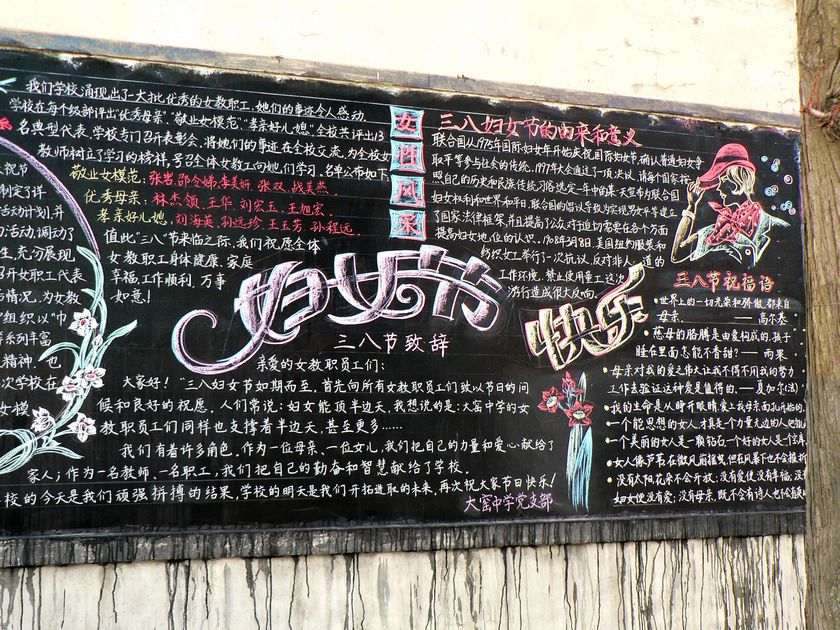 我们学校涌现出了一大批优秀的女教职工,她们的事迹令人感动,
学校在每个级部评出"优秀母亲""敬业女模范""孝亲好儿媳"全校共评出13
名典型代表,学校专门召开表彰会,将她们的事迹在全校交流,为全校女
教师树立了学习的榜样,号召全体女教工向她们学习,名单公布如下:
敬业女模范:
优秀母亲:林杰领、王华、刘宏玉、王旭宏.
孝亲好儿媳,刘海英、孙远珍、王玉芳、孙程远.
值此"三八"节来临之际,我们祝愿全体
女教职工身体健康、家庭
幸福、工作顺利、万事
如意!
祝节
制定了详
活动计划,并
活动,调动了
生,充分展现
召开女职工代表
情况,为女教
组织以"巾
系列丰富
精神.也
次学校在
女模
女
部
风
采
三八妇女节的由来和意义
联合国从1975年国际妇女年开始庆祝国际妇女节,确认普通妇女争
取平等参与社会的传统,1977年大会通过了一项决议,请每个国家按
照自己的历史和民族传统习俗选定一年中的某一天宣布为联合国
妇女权利和世界和平日,联合国的倡议导致为实现男女平等建立
了国家法律框架,并且提高了公众对于迫切需要在各个方面
提高妇女地位的认识.1908年3月8日,美国纽约服装和
纺织女工举行了一次抗议,反对非人道的
工作环境,禁止使用童工,这次
游行造成很大反响。
妇女节
快乐
三八节致辞
亲爱的女教职员工们:
大家好!"三八妇女节如期而至,首先向所有女教职员工们致以节日的问
候和良好的祝愿,人们常说:妇女能顶半边天,我想说的是:大窑中学的女
教职员工们同样也支撑着半边天,甚至更多……
我们有着许多角色,作为一位母亲、一位女儿,我们把自己的力量和爱心献给了
家人;作为一名教师、一名职工,我们把自己的勤奋和智慧献给了学校。
校的今天是我们顽强拼搏的结果,学校的明天是我们开拓进取的未来,再次祝大家节日快乐!
大窑中学党支部
三八节祝福语
•世界上的一切光荣和骄傲,都来自
母亲. ——高尔基
•慈母的胳膊是由爱构成的,孩子
睡在里面怎能不香甜?——雨果
•母亲对我的爱之伟大让我不得不用我的努力
工作去验证这种爱是值得的.——夏加尔(法)
•我的生命是从睁开眼睛,爱上我母亲面孔开始的.
•一个能思想的女人,才真是个力量无边的人,
•一个美丽的女人是一颗钻石,一个好的女人是个宝库
•
•没有太阳,花朵不会开放;没有爱便没有幸福;没有
妇女便没有爱;没有母亲,既不会有诗人也不会有